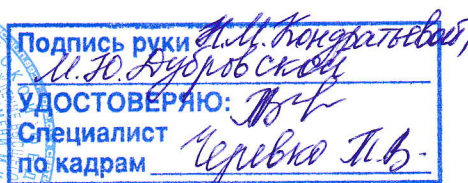 Подпись руки Н.М. Кондратьевой,
М.Ю. Дубровской
УДОСТОВЕРЯЮ:
Специалист
по кадрам Черевко П.В.